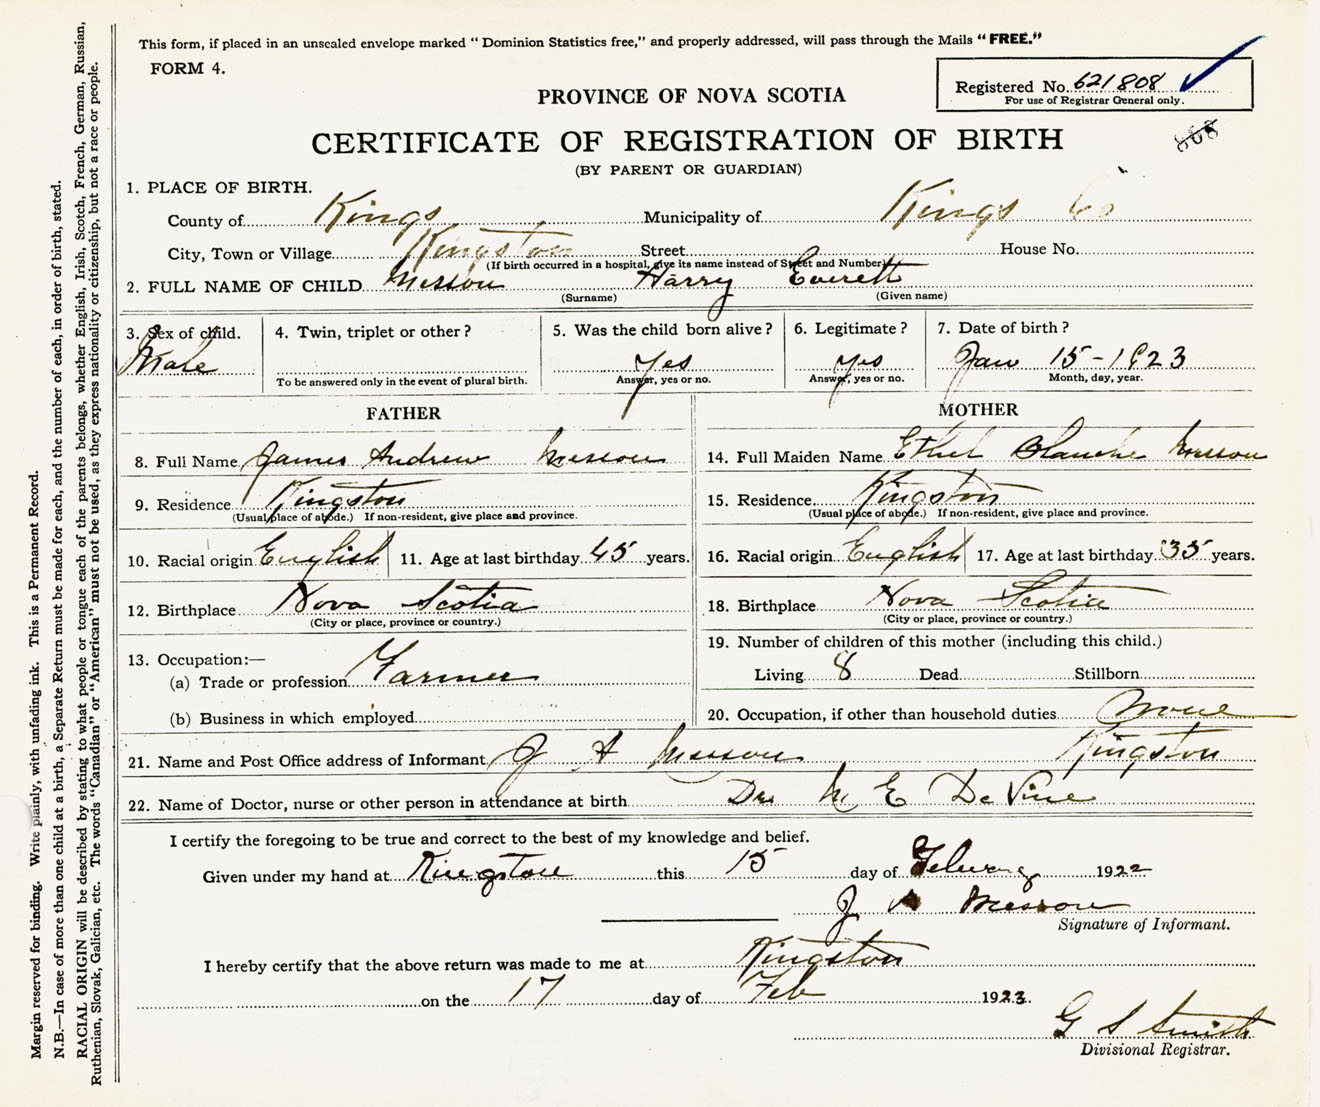 This form, if placed in an unsealed envelope marked " Dominion Statistics free," and properly addressed, will pass through the Mails " FREE."
FORM 4.
Registered No. 621808
For use of Registrar General only.
PROVINCE OF NOVA SCOTIA
CERTIFICATE OF REGISTRATION OF BIRTH
868
(BY PARENT OR GUARDIAN)
1. PLACE OF BIRTH.
County of Kings Municipality of Kings Co
City, Town or Village Kingston Street House No.
(If birth occurred in a hospital, give its name instead of Street and Number)
2. FULL NAME OF CHILD Messon Harry Everett
(Surname) (Given name)
3. Sex of child. 4. Twin, triplet or other? 5. Was the child born alive? 6. Legitimate? 7. Date of birth?
Male Yes Yes Jan 15-1923
To be answered only in the event of plural birth. Answer, yes or no. Answer, yes or no. Month, day, year.
FATHER
8. Full Name James Andrew Messon
9. Residence Kingston
(Usual place of abode.) If non-resident, give place and province.
10. Racial origin English 11. Age at last birthday 45 years.
12. Birthplace Nova Scotia
(City or place, province or country.)
13. Occupation:—
(a) Trade or profession Farmer
(b) Business in which employed
MOTHER
14. Full Maiden Name Ethel Blanche Messon
15. Residence Kingston
(Usual place of abode.) If non-resident, give place and province.
16. Racial origin English 17. Age at last birthday 35 years.
18. Birthplace Nova Scotia
(City or place, province or country.)
19. Number of children of this mother (including this child.)
Living 8 Dead Stillborn
20. Occupation, if other than household duties None
21. Name and Post Office address of Informant J A Messon Kingston
22. Name of Doctor, nurse or other person in attendance at birth Dr M E DeVine
I certify the foregoing to be true and correct to the best of my knowledge and belief.
Given under my hand at Kingston this 15 day of 1922
J A Messon
Signature of Informant.
I hereby certify that the above return was made to me at Kingston
on the 17 day of Feb 1923.
G S Smith
Divisional Registrar.
Margin reserved for binding. Write plainly, with unfading ink. This is a Permanent Record.
N.B.—In case of more than one child at a birth, a Separate Return must be made for each, and the number of each, in order of birth, stated.
RACIAL ORIGIN will be described by stating to what people or tongue each of the parents belongs, whether English, Irish, Scotch, French, German, Russian,
Ruthenian, Slovak, Galician, etc. The words "Canadian" or "American" must not be used, as they express nationality or citizenship, but not a race or people.